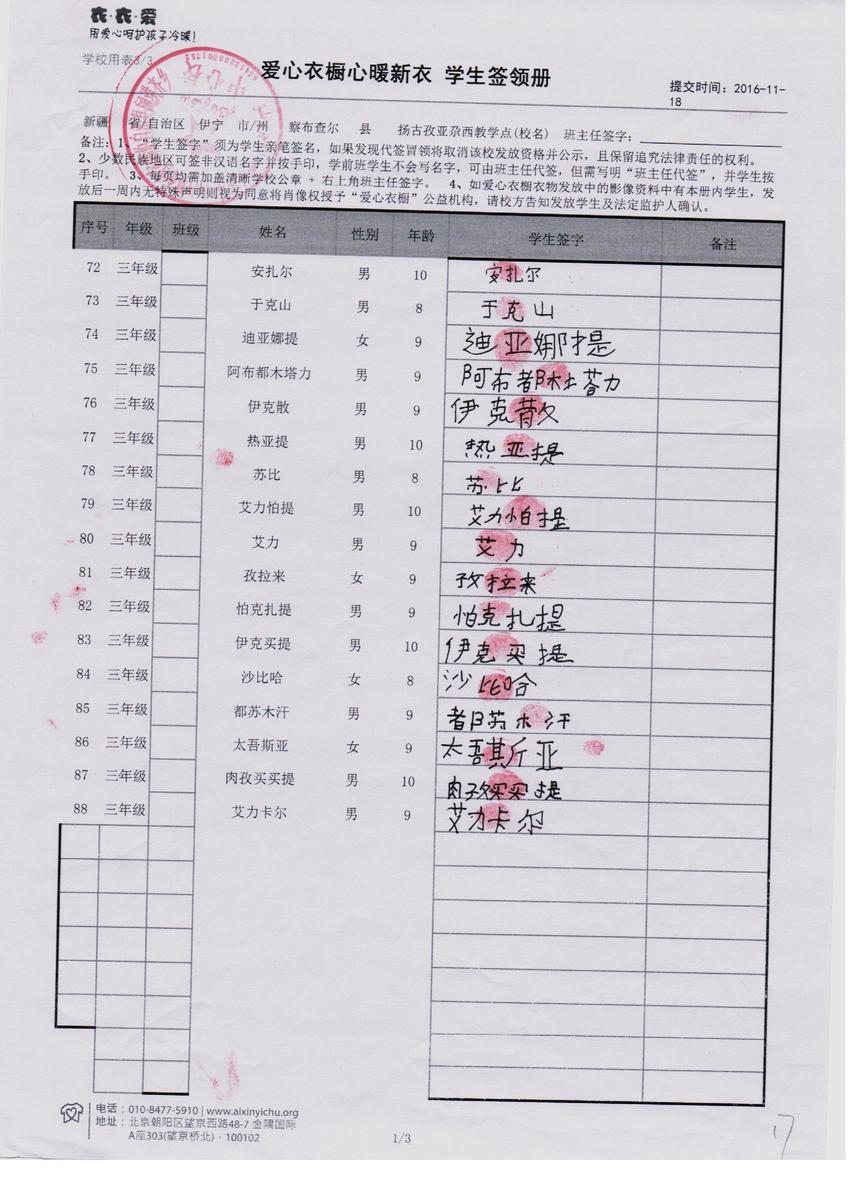 衣·衣·爱
用爱心呵护孩子冷暖!
学校用表3/3
爱心衣橱心暖新衣 学生签领册
提交时间：2016-11-18
新疆 省/自治区 伊宁 市/州 察布查尔 县 扬古孜亚尕西教学点(校名) 班主任签字：
备注：1、“学生签字”须为学生亲笔签名，如果发现代签冒领将取消该校发放资格并公示，且保留追究法律责任的权利。
2、少数民族地区可签非汉语名字并按手印，学前班学生不会写名字，可由班主任代签，但需写明“班主任代签”，并学生按
手印。 3、每页均需加盖清晰学校公章 + 右上角班主任签字。 4、如爱心衣橱衣物发放中的影像资料中有本册内学生，发
放后一周内无特殊声明则视为同意将肖像权授予“爱心衣橱”公益机构，请校方告知发放学生及法定监护人确认。
序号 年级 班级 姓名 性别 年龄 学生签字 备注
72 三年级 安扎尔 男 10 安扎尔
73 三年级 于克山 男 8 于克山
74 三年级 迪亚娜提 女 9 迪亚娜提
75 三年级 阿布都木塔力 男 9 阿布都木塔力
76 三年级 伊克散 男 9 伊克散
77 三年级 热亚提 男 10 热亚提
78 三年级 苏比 男 8 苏比
79 三年级 艾力怕提 男 10 艾力怕提
80 三年级 艾力 男 9 艾力
81 三年级 孜拉来 女 9 孜拉来
82 三年级 怕克扎提 男 9 怕克扎提
83 三年级 伊克买提 男 10 伊克买提
84 三年级 沙比哈 女 8 沙比哈
85 三年级 都苏木汗 男 9 都苏木汗
86 三年级 太吾斯亚 女 9 太吾其斤亚
87 三年级 肉孜买买提 男 10 肉孜买买提
88 三年级 艾力卡尔 男 9 艾力卡尔
电话：010-8477-5910 | www.aixinyichu.org
地址：北京朝阳区望京西路48-7 金隅国际
A座303(望京桥北)·100102
1/3
17